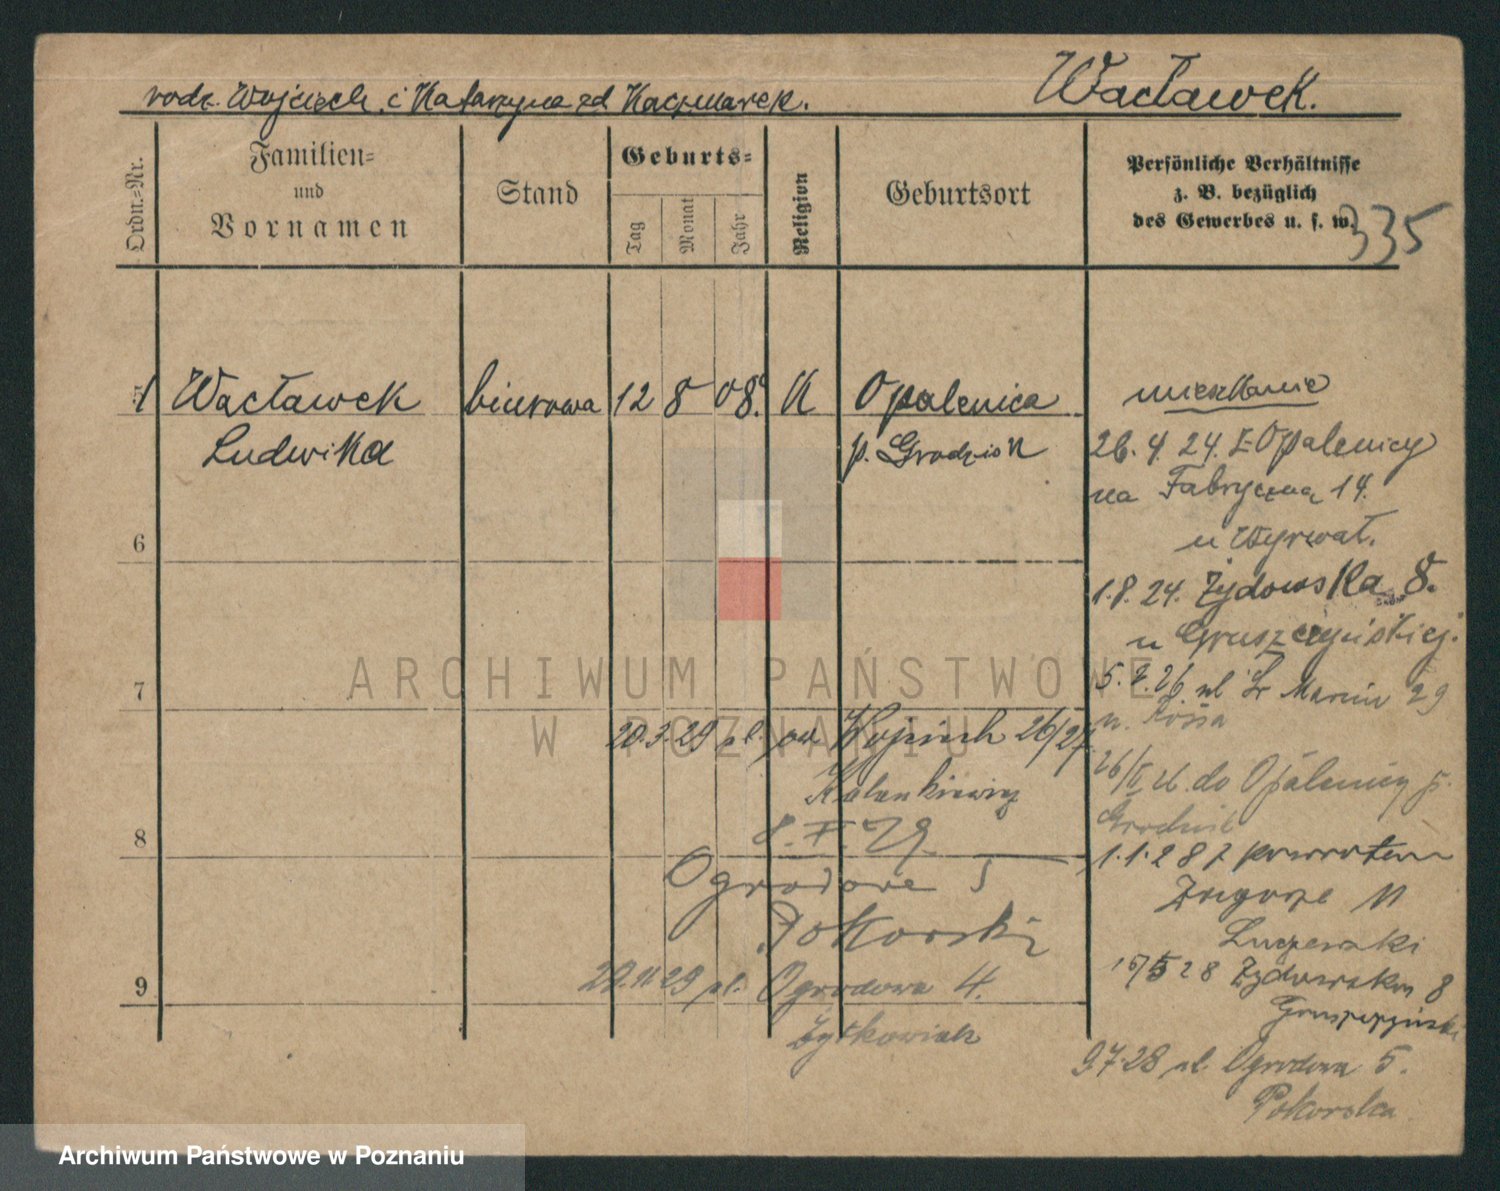 Wacławek.
rodz. Wojciech i Katarzyna zd Kaczmarek.
Ordn.=Nr.
Familien=
und
Vornamen
Stand
Geburts=
Tag
Monat
Jahr
Religion
Geburtsort
Persönliche Verhältnisse
z. B. bezüglich
des Gewerbes u. s. w.
335
1 Wacławek biurowa 12 8 08. K Opalenica
Ludwika p. Grodzisk
mieszkanie
26. 4. 24. z Opalenicy
na Fabryczną 14.
u Wyrwał.
1. 8. 24. Żydowska 8.
u Gruszczyńskiej.
5. 7. 26 ul Św Marcin 29
u.
26/ do Opalenicy p.
Grodzisk
1. 1. 28 z powrotem
Zagórze 11
15/5 28 Żydowska 8
Gruszczyński
9.7.28 ul. Ogrodowa 5.
Pokorska
6
7
20.3.29 ul. 26/27
8
8. 29
Ogrodowe 5
Pokorski
9
29.11 29 ul. Ogrodowa 4.
Żytkowiak
ARCHIWUM PAŃSTWOWE
W POZNANIU
Archiwum Państwowe w Poznaniu